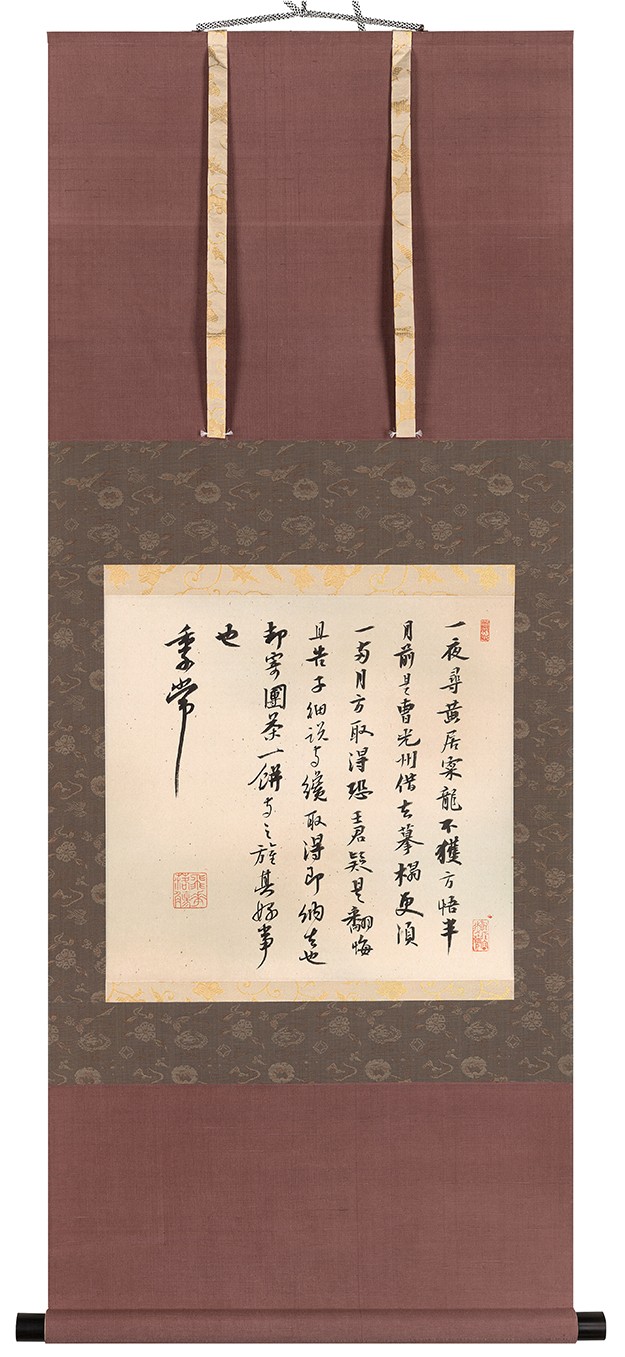 一夜尋黃居寀龍不獲方悟半
月前是曹光州借去摹榻更須
一兩月方取得恐王君疑是翻悔
且告子細說与纔取得即納去也
却寄團茶一餅与之旌其好事
也
季常